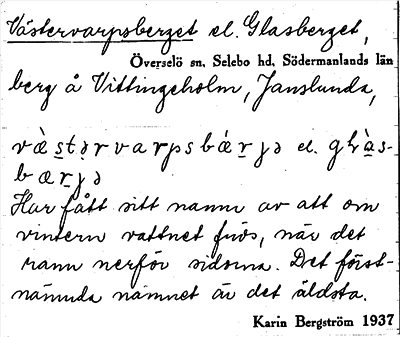 Västervarpsberget el. Glasberget,
Överselö sn. Selebo hd. Södermanlands län
berg å Vittingeholm, Janslunda,
væ̀stərvarpsbǽrjə el. glɑ̀s-
bærjə
Har fått sitt namn av att om
vintern vattnet frös, när det
rann nerför sidorna. Det först-
nämnda namnet är det äldsta.
Karin Bergström 1937